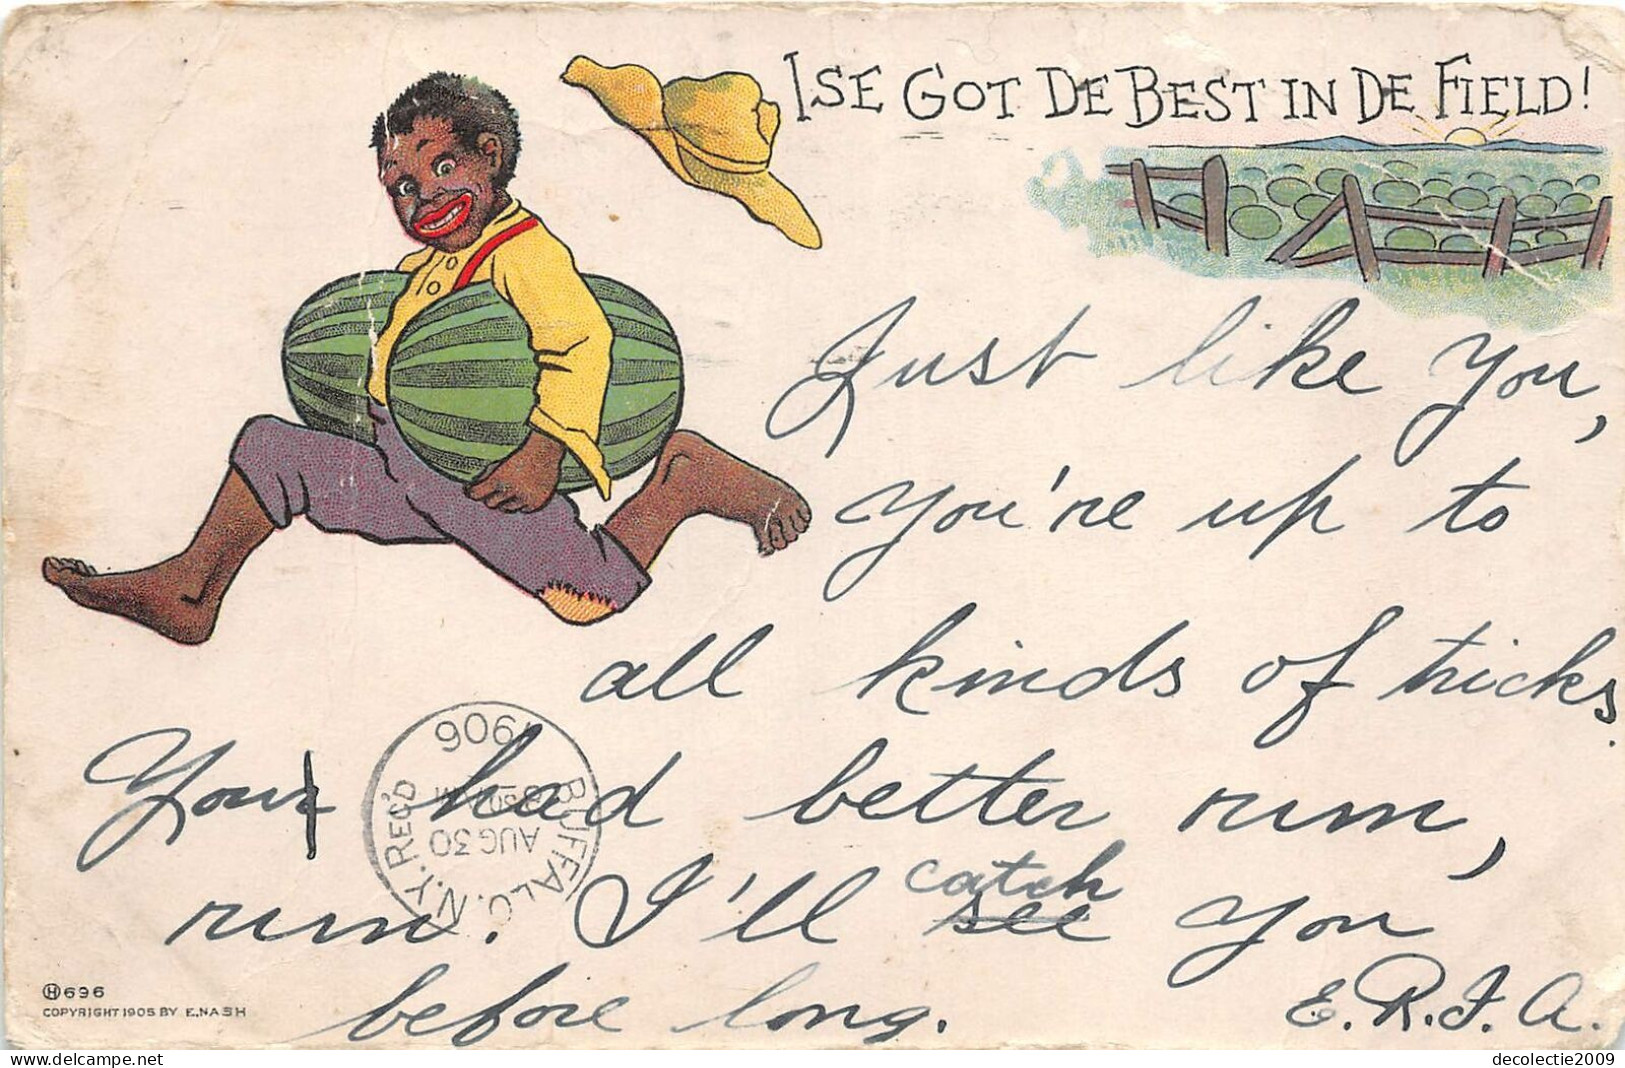 ISE GOT DE BEST IN DE FIELD!
Just like you,
you're up to
all kinds of tricks.
You had better run,
run. I'll see catch you
before long. E.R.J.A.
BUFFALO, N.Y. REC'D
AUG 30
1906
H 696
COPYRIGHT 1905 BY E. NASH
decolectie2009